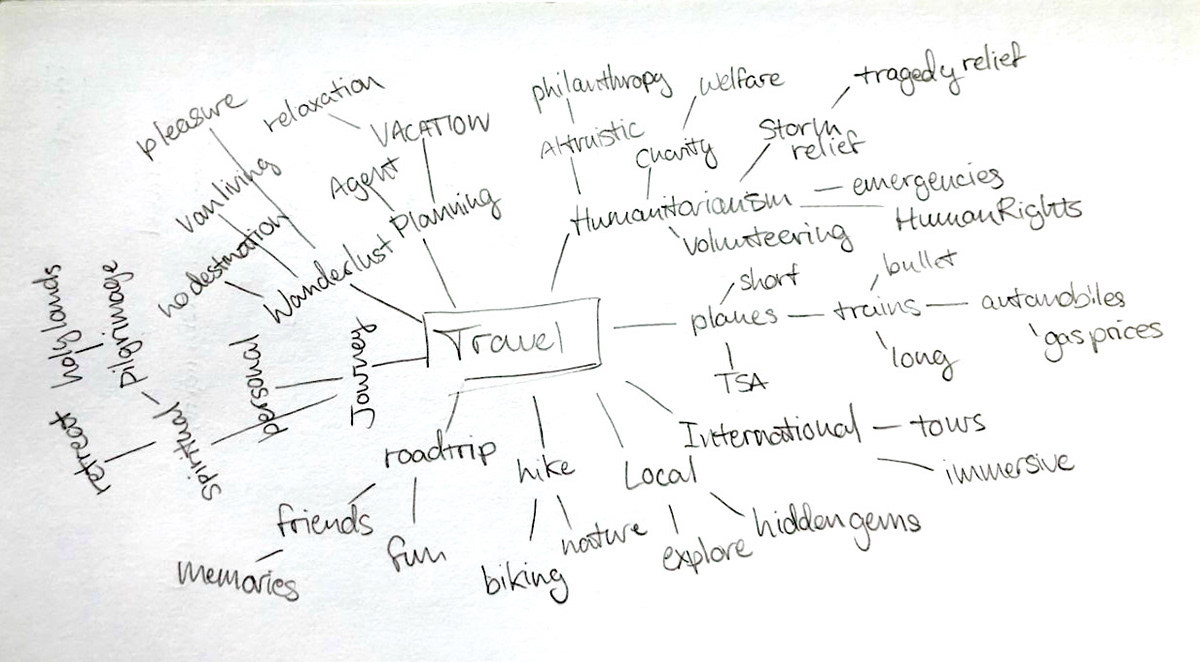 pleasure
relaxation
VACATION
philanthropy
welfare
tragedy relief
Altruistic
Charity
Storm
relief
van living
Agent
Planning
Humanitarianism
emergencies
Human Rights
Volunteering
no destination
Wanderlust
short
bullet
holy lands
pilgrimage
personal
Journey
Travel
planes
trains
automobiles
gas prices
long
TSA
retreat
spiritual
roadtrip
hike
Local
International
tours
immersive
friends
fun
nature
explore
hidden gems
memories
biking